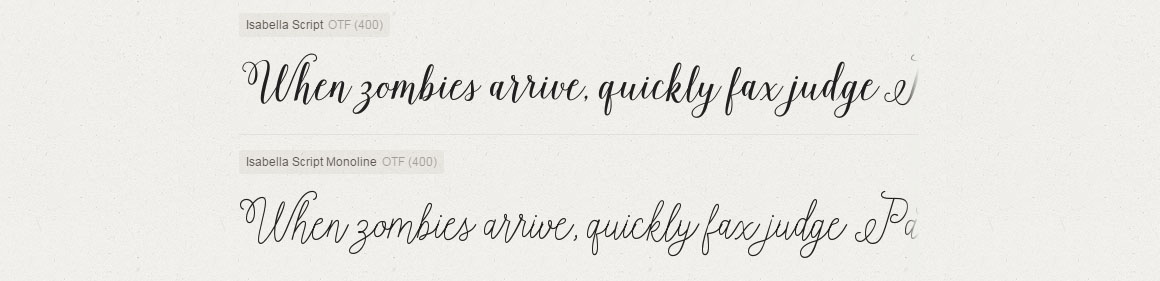 Isabella Script OTF (400)
When zombies arrive, quickly fax judge
Isabella Script Monoline OTF (400)
When zombies arrive, quickly fax judge Pa